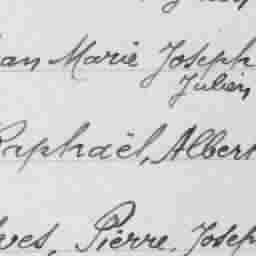 an Marie Joseph
Julien
Raphaël, Albert
ves, Pierre, Joseph